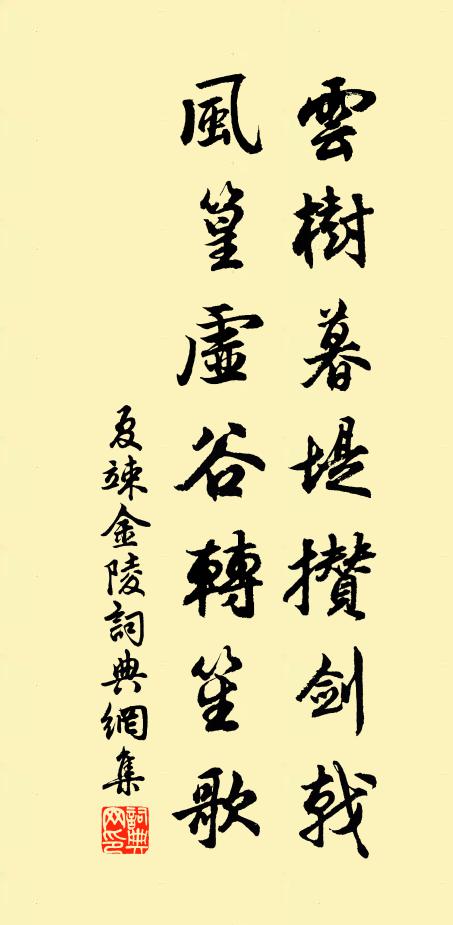 雲樹暮堤攢劍戟
風篁虛谷轉笙歌
夏竦金陵詞典網集
詞典網印